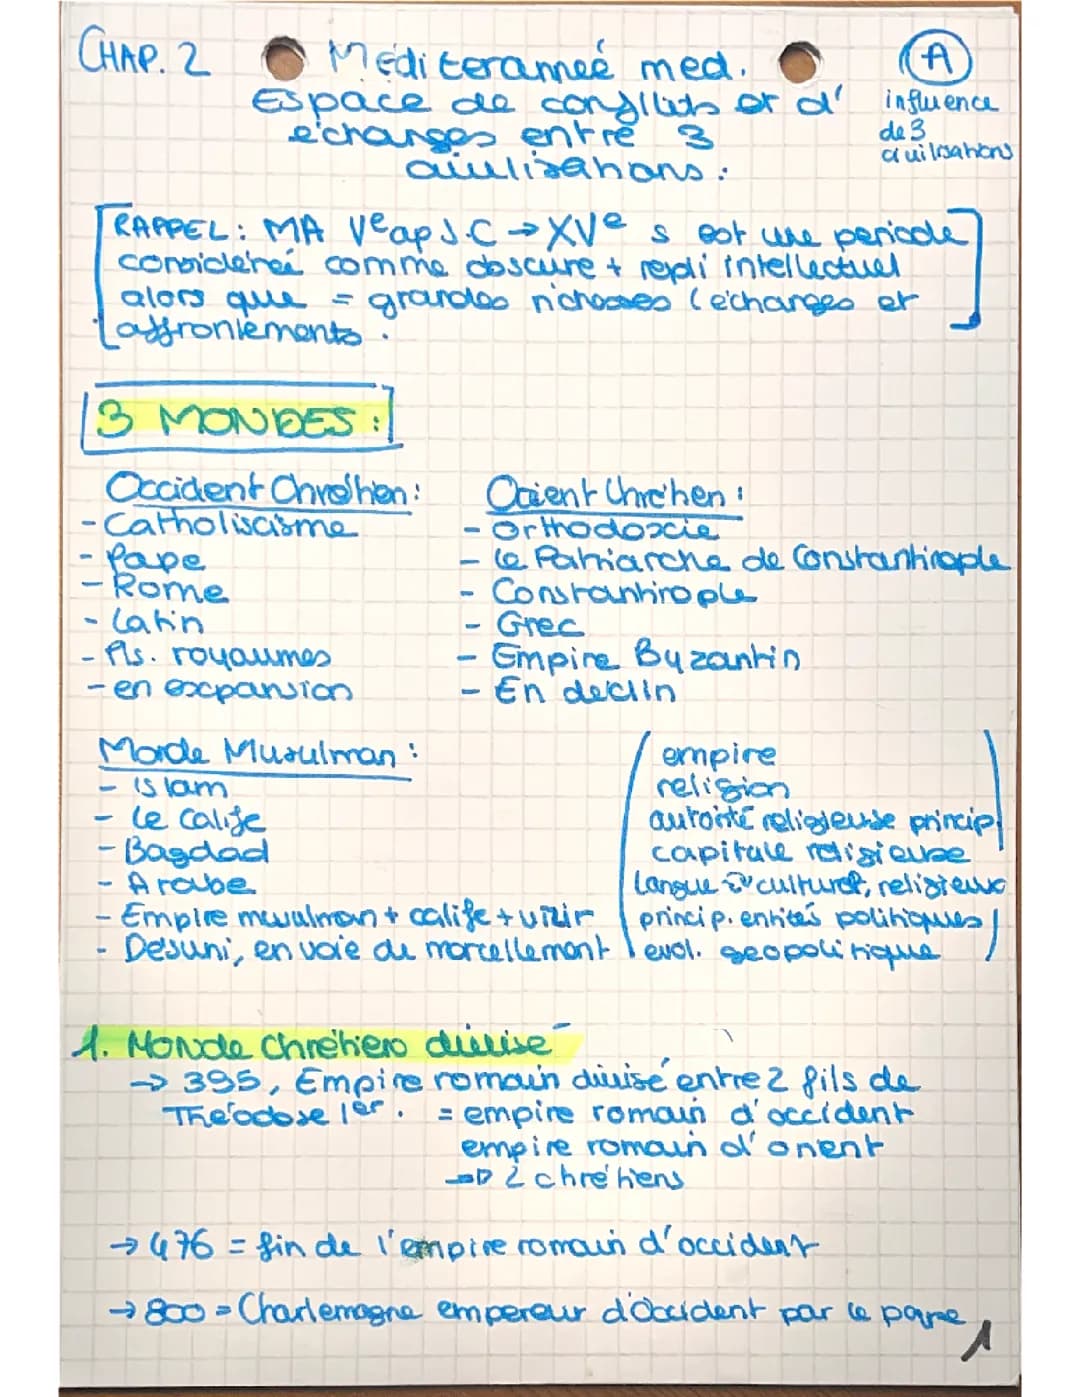 CHAP. 2
Méditeranneé med.
Espace de conflits et d'
échanges entre 3
civilisations :
A
influence
de 3
civilisations
RAPPEL : MA Ve ap J.C → XVe s est une periode
considéreé comme obscure + repli intellectuel
alors que = grandes richesses (échanges et
affrontements.
3 MONDES :
Occident Chrétien :
- Catholiscisme
- Pape
- Rome
- Latin
- Pls. royaumes
- en expansion
Orient Chrétien :
- Orthodoxie
- Le Patriarche de Constantinople
- Constantinople
- Grec
- Empire Byzantin
- En declin
Monde Musulman :
- islam
- Le Calife
- Bagdad
- Arabe
- Empire musulman + calife + vizir
- Desuni, en voie de morcellement
empire
religion
autorité religieuse princip.
capitale religieuse
langue culturel, religieuse
princip. entités politiques
evol. geopolitique
1. Monde chrétien divisé
→ 395, Empire romain divisé entre 2 fils de
Théodose 1er. = empire romain d'occident
empire romain d'orient
→ 2 chrétiens
→ 476 = fin de l'empire romain d'occident
→ 800 = Charlemagne empereur d'Occident par le pape
1